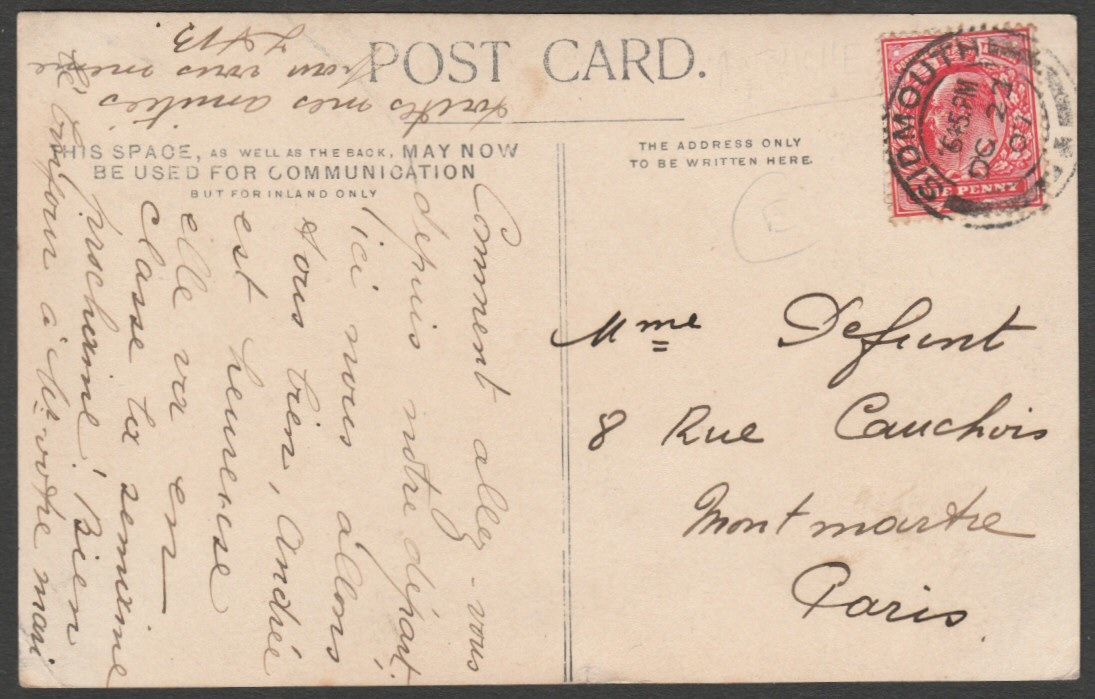 POST CARD.
THIS SPACE, AS WELL AS THE BACK, MAY NOW
BE USED FOR COMMUNICATION
BUT FOR INLAND ONLY
THE ADDRESS ONLY
TO BE WRITTEN HERE.
SIDMOUTH
6.45.PM
OC 22
07
ONE PENNY
E
Mme Defunt
8 Rue Cauchois
Montmartre
Paris.
Comment allez-vous
depuis notre départ.
ici nous allons
tous bien, Andrée
est heureuse
elle va en
classe la semaine
prochaine! Bien
le bonjour à Mr votre mari
toutes mes amitiés
pour vous même